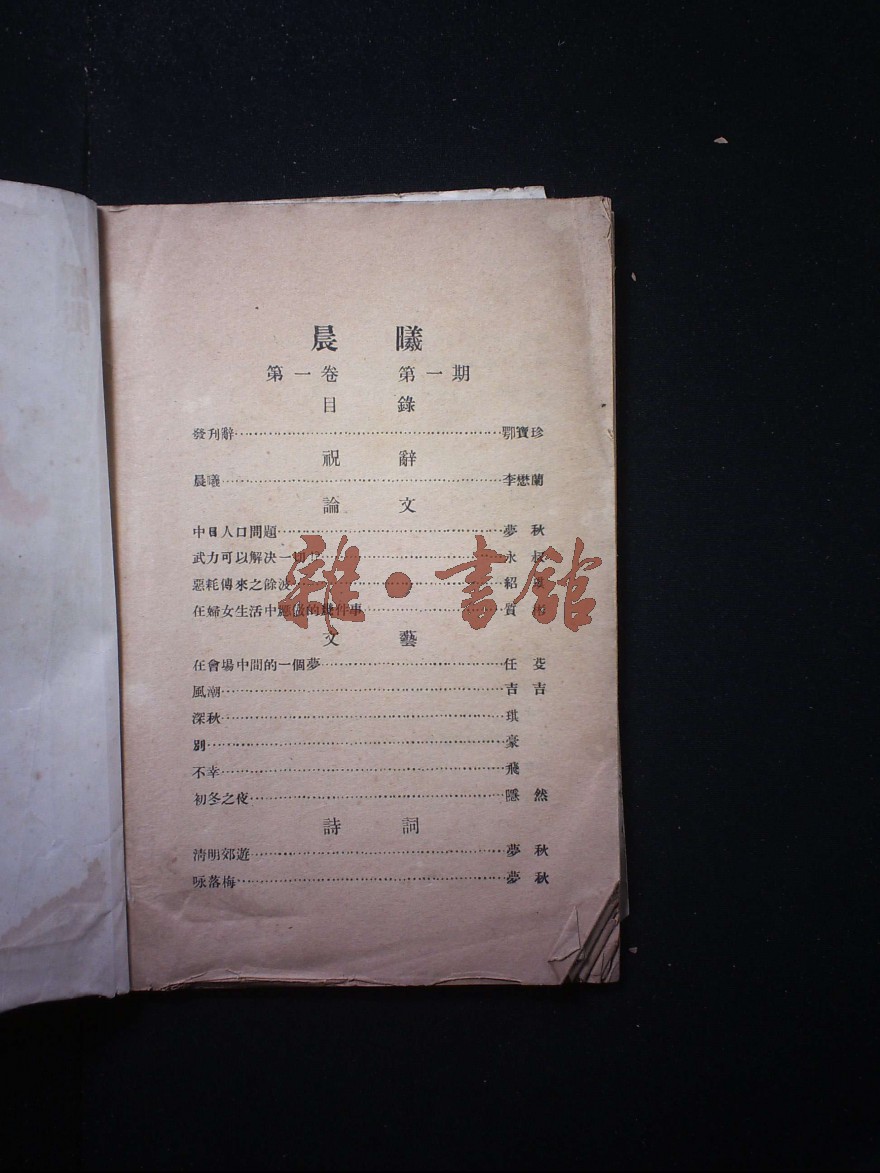 晨曦
第一卷 第一期
目錄
發刊辭……鄂寶珍
祝辭
晨曦……李懋蘭
論文
中日人口問題……夢秋
武力可以解决一切……永叔
惡耗傳來之餘波……紹
在婦女生活中應做的幾件事……質
文藝
在會場中間的一個夢……任芟
風潮……吉吉
深秋……琪
別……豪
不幸……飛
初冬之夜……隱然
詩詞
清明郊遊……夢秋
咏落梅……夢秋
雜·書館